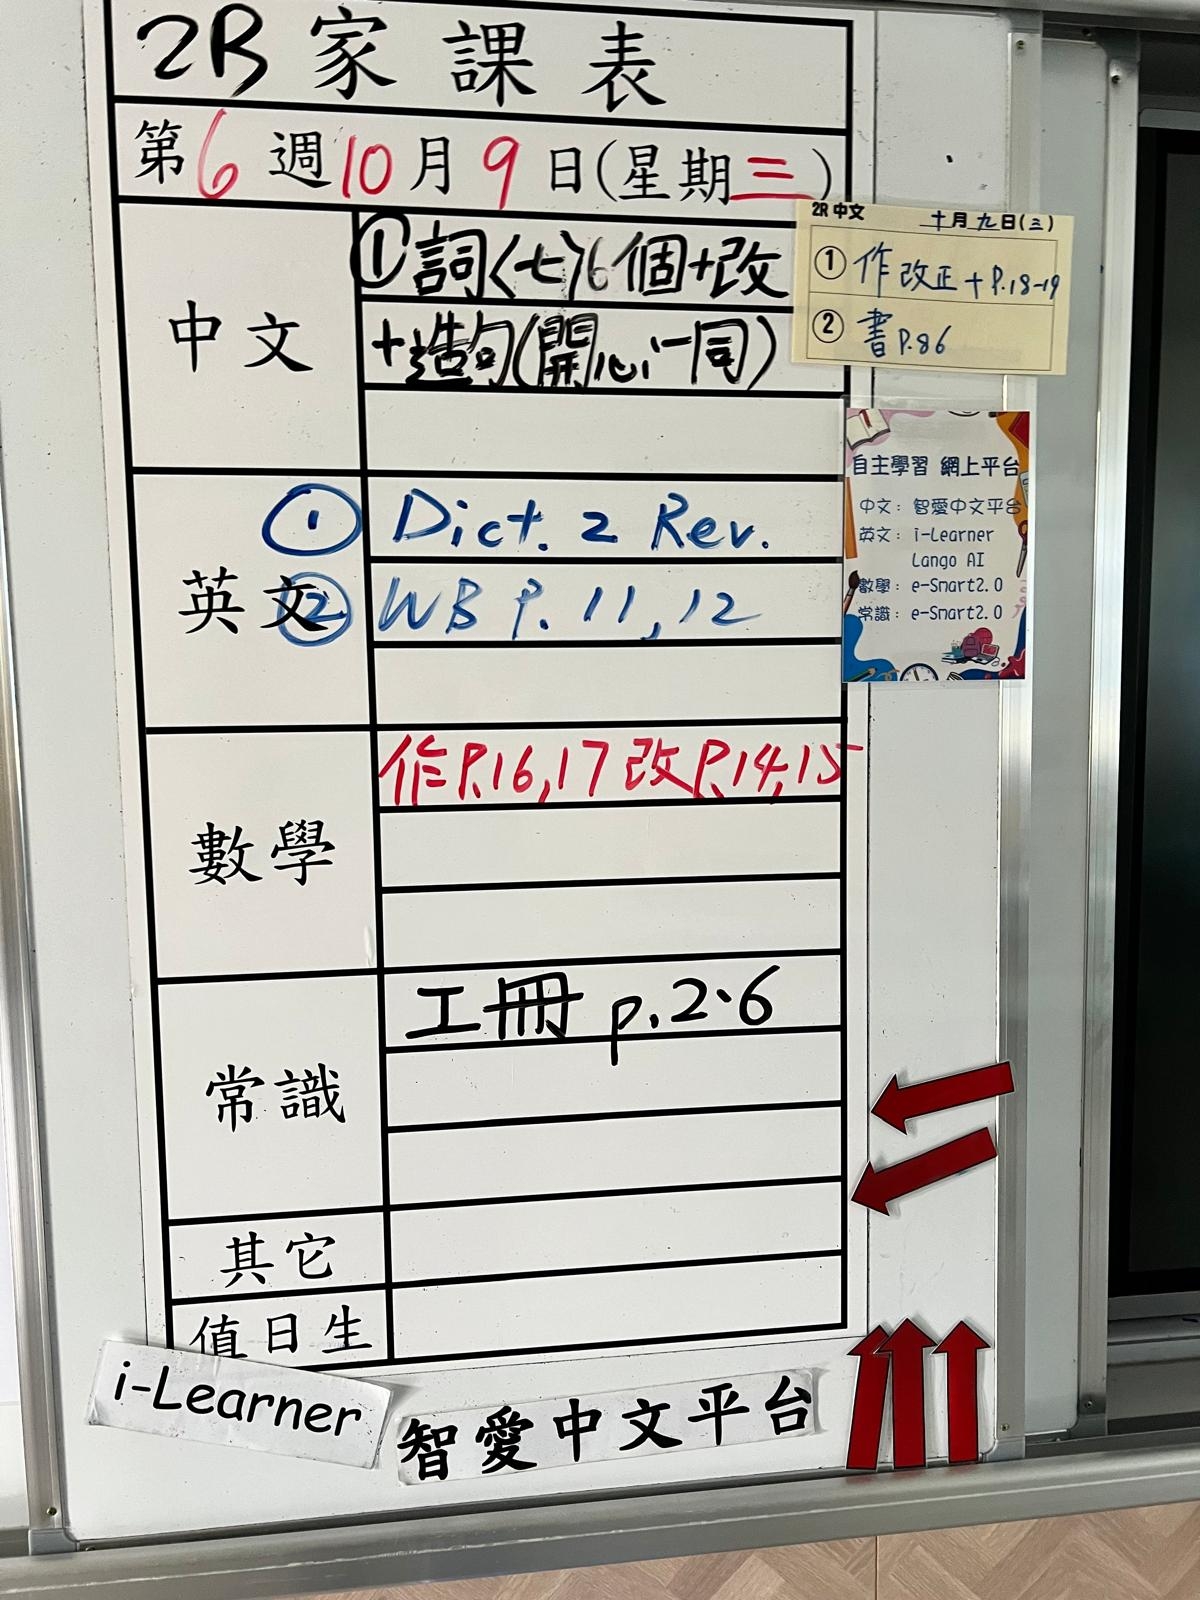 2R家課表
第6週10月9日(星期三)
中文
①詞〈七〉6個+改
+造句(開心一同)
2R 中文 十月九日(三)
① 作改正+P.18-19
② 書P.86
自主學習 網上平台
中文：智愛中文平台
英文：i-Learner
Lango AI
數學：e-Smart2.0
常識：e-Smart2.0
英文
① Dict. 2 Rev.
② WB P. 11, 12
數學
作P.16,17 改P.14,15
常識
工冊 p.2-6
其它
值日生
i-Learner
智愛中文平台